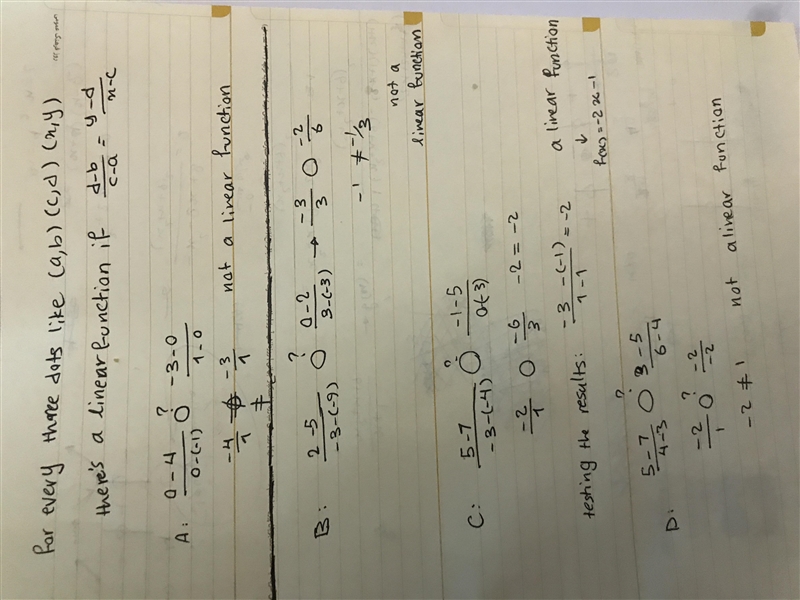 For every three dots like (a,b) (c,d) (x,y)
there's a linear function if d-b/c-a = y-d/x-c
A: 0-4/0-(-1) ○? -3-0/1-0
-4/1 ≠ -3/1 not a linear function
≠
B: 2-5/-3-(-9) ○? 0-2/3-(-3) → -3/3 ○ -2/6
-1 ≠ -1/3
not a
linear function
C: 5-7/-3-(-4) ○? -1-5/0-(-3)
-2/1 ○ -6/3 -2 = -2
testing the results: -3-(-1)/1-1 = -2 a linear function
↓
f(x) = -2x-1
D: 5-7/4-3 ○? 3-5/6-4
-2/1 ○? -2/-2
-2 ≠ 1 not a linear function